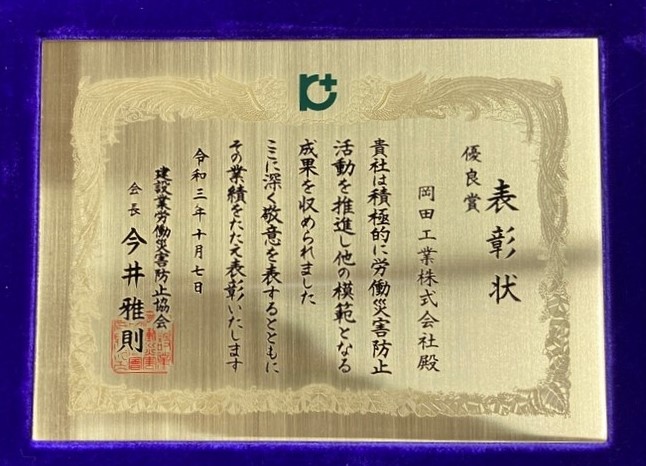 表彰状
優良賞
岡田工業株式会社殿
貴社は積極的に労働災害防止
活動を推進し他の模範となる
成果を収められました
ここに深く敬意を表するとともに
その業績をたたえ表彰いたします
令和三年十月七日
建設業労働災害防止協会
会長 今井雅則